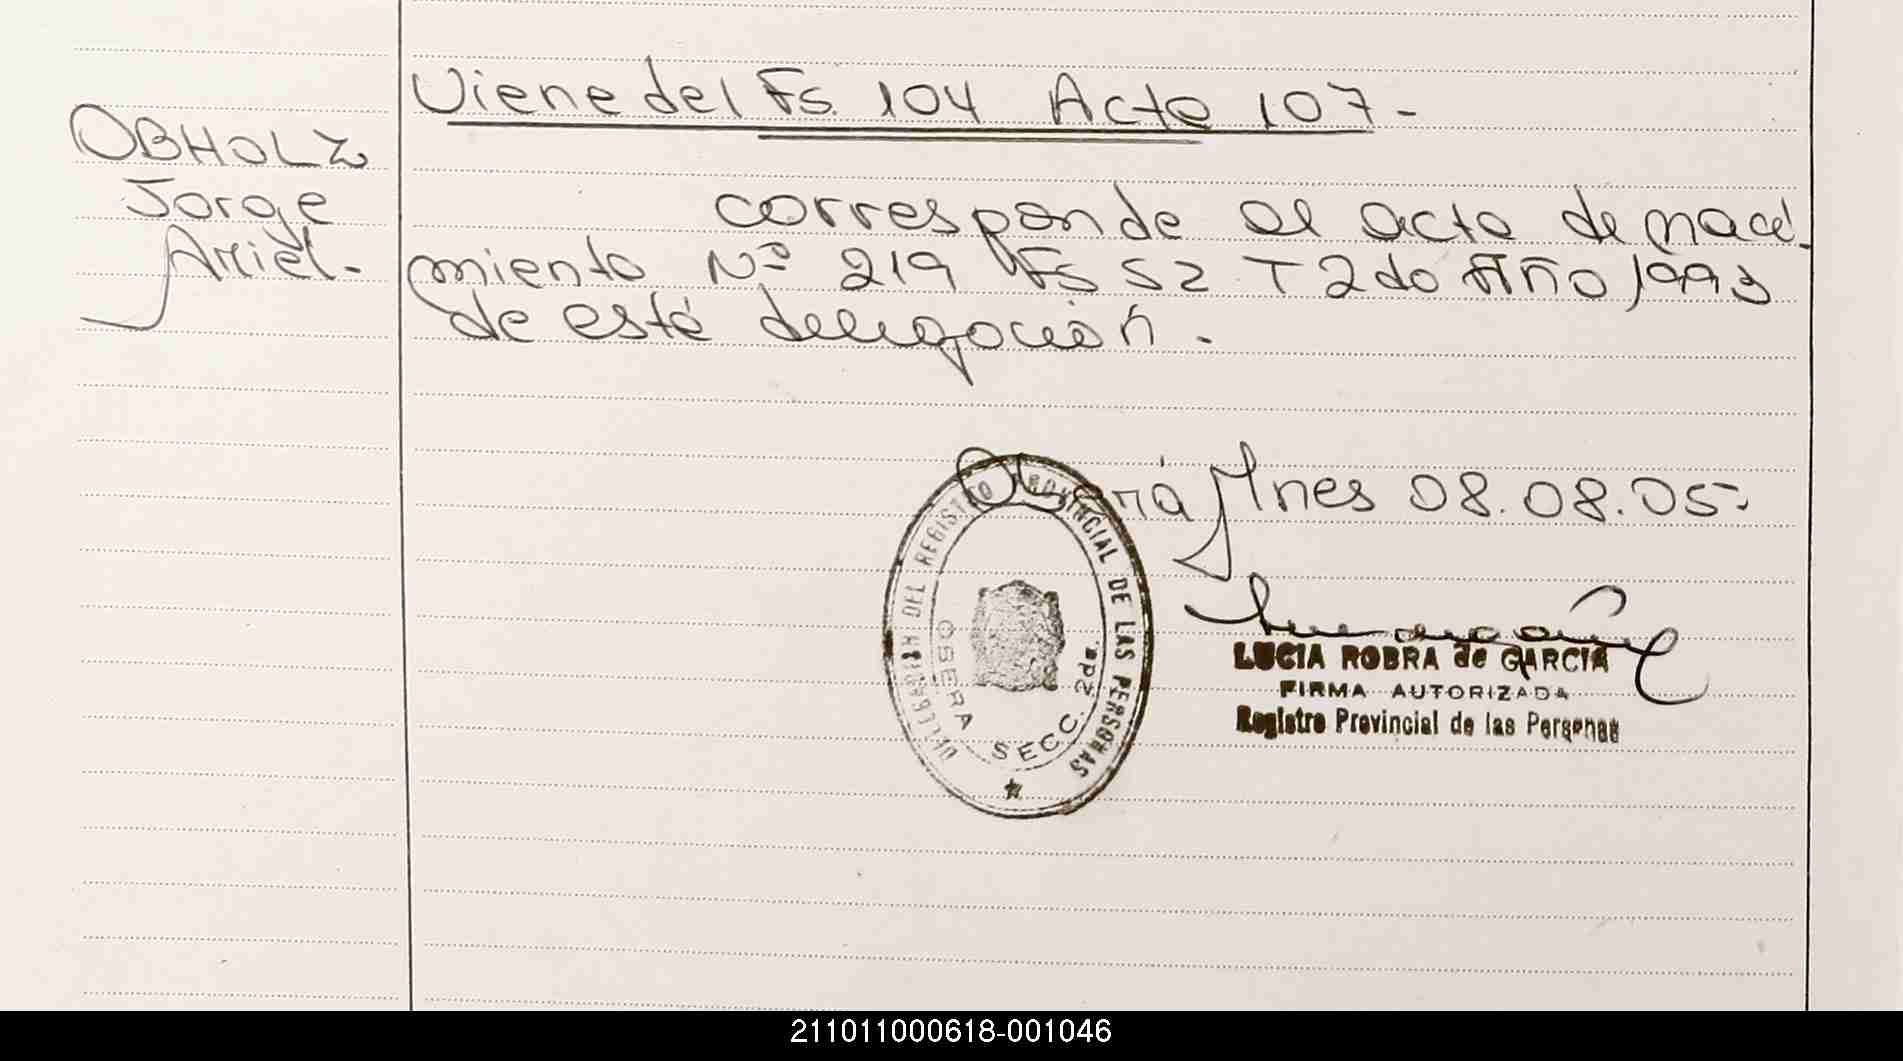 Viene del Fs. 104 Acta 107-
OBHOLZ
Jorge
Ariel-
corresponde al acta de naci-
miento Nº 219 Fs 52 T 2do Año 1993
de esté delegación.
Oberá Mnes 08.08.05.
DELEGACION DEL REGISTRO PROVINCIAL DE LAS PERSONAS
OBERA SECC. 2da.
LUCIA ROBRA de GARCIA
FIRMA AUTORIZADA
Registro Provincial de las Personas
211011000618-001046